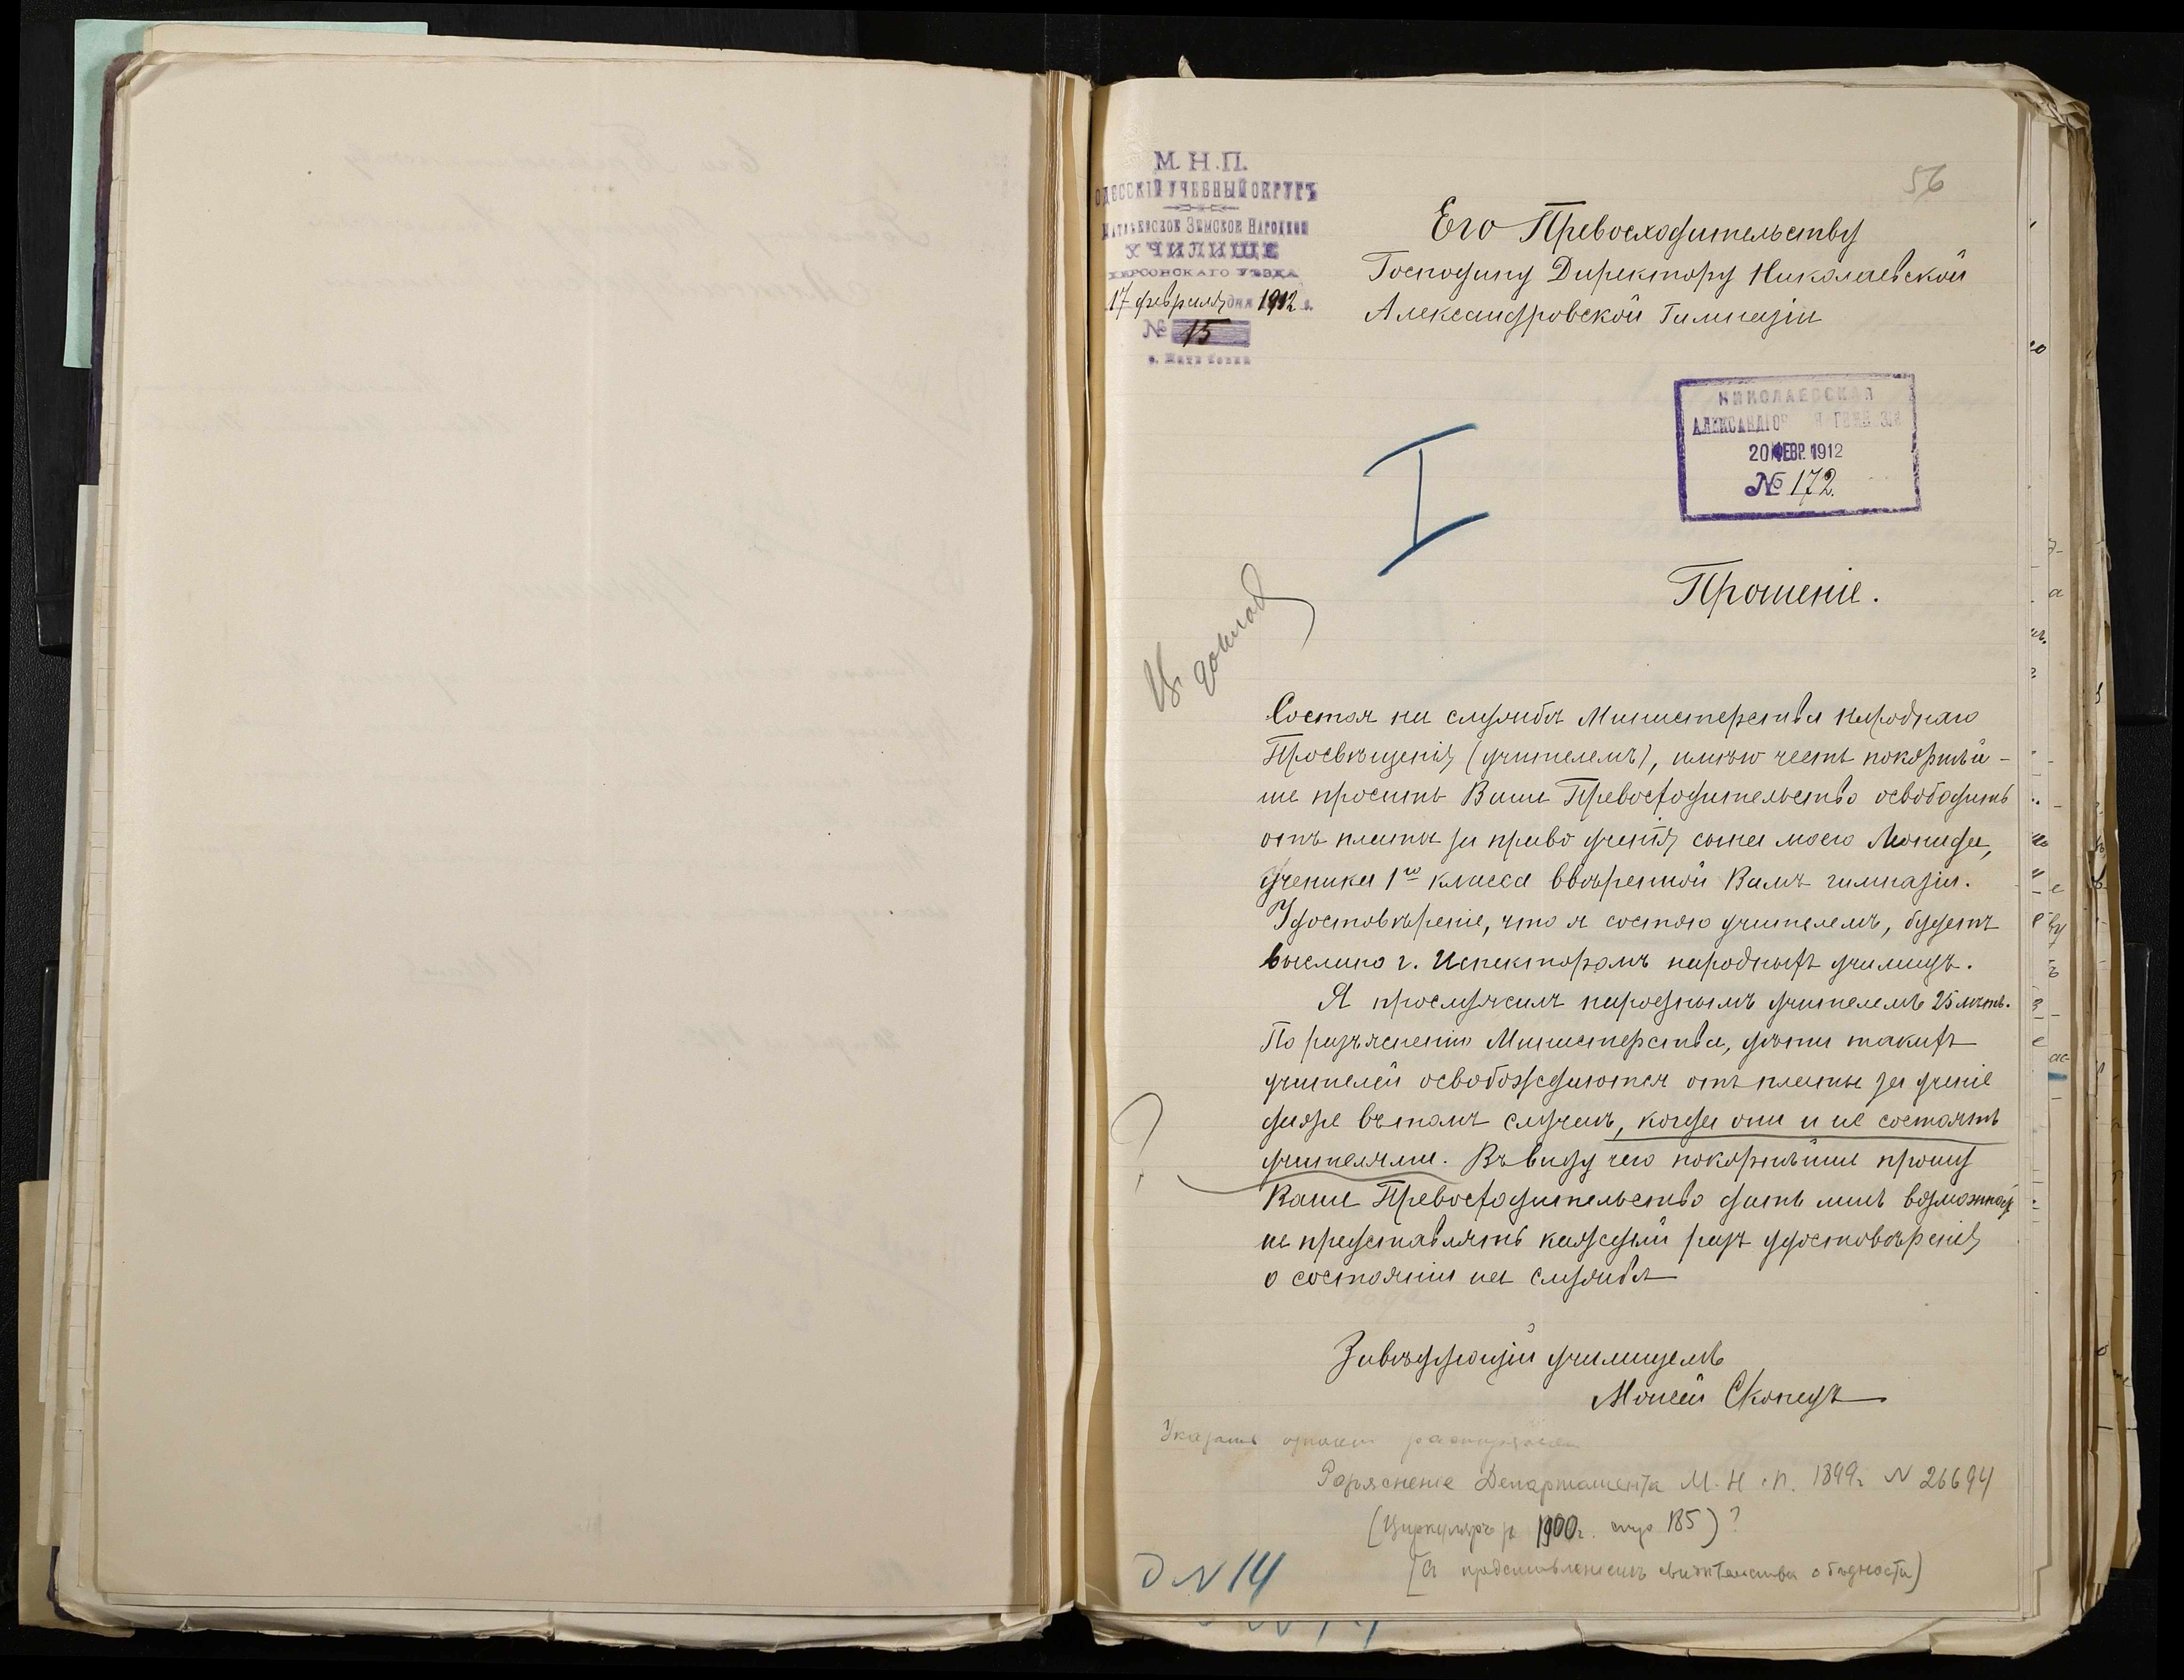 56
М. Н. П.
ОДЕССКІЙ УЧЕБНЫЙ ОКРУГЪ
ЗЕМСКОЕ НАРОДНОЕ
УЧИЛИЩЕ
ХЕРСОНСКАГО УѢЗДА
17 февраля дня 1912 г.
№ 15
Его Превосходительству
Господину Директору Николаевской
Александровской Гимназіи
НИКОЛАЕВСКАЯ
20 ФЕВР. 1912
№ 172.
I
Прошеніе.
Состоя на службѣ Министерства народнаго
Просвѣщенія (учителемъ), имѣю честь покорнѣй-
ше просить Ваше Превосходительство освободить
отъ платы за право ученія сына моего Леонида,
ученика 1го класса ввѣренной Вамъ гимназіи.
Удостовѣреніе, что я состою учителемъ, будетъ
выслано г. Испекторомъ народныхъ училищъ.
Я прослужилъ народнымъ учителемъ 25 лѣтъ.
По разъясненію Министерства, дѣти такихъ
учителей освобождаются отъ платы за ученіе
даже въ томъ случаѣ, когда они и не состоятъ
учителями. Въ виду чего покорнѣйше прошу
?
Ваше Превосходительство дать мнѣ возможность
не представлять каждый разъ удостовѣренія
о состояніи на службѣ
Завѣдующій училищемъ
Моисей Скопецъ
Указать
Разъясненіе Департамента М. Н. П. 1899 г. N 26694
(Циркуляръ 1900 г. стр 185)?
(съ представленіемъ свидѣтельства о бѣдности)
Д N 14